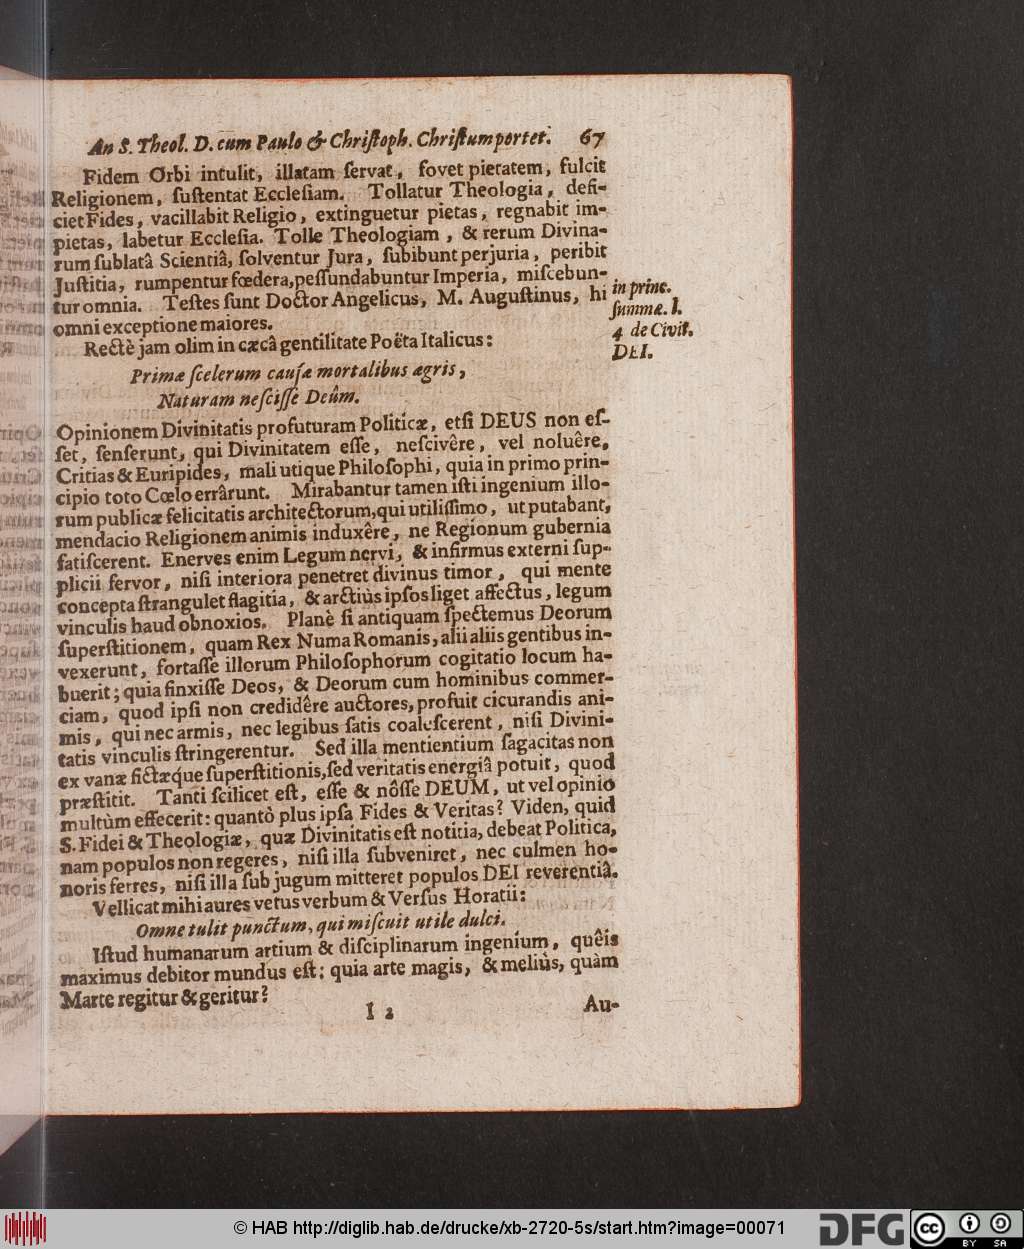 An S. Theol. D. cum Paulo & Chriſtoph. Chriſtumportet. 67
Fidem Orbi intulit, illatam ſervat, fovet pietatem, fulcit
Religionem, ſuſtentat Eccleſiam. Tollatur Theologia, defi-
ciet Fides, vacillabit Religio, extinguetur pietas, regnabit im-
pietas, labetur Eccleſia. Tolle Theologiam, & rerum Divina-
rum ſublatâ Scientiâ, ſolventur Jura, ſubibunt perjuria, peribit
Juſtitia, rumpentur fœdera, peſſundabuntur Imperia, miſcebun-
tur omnia. Teſtes ſunt Doctor Angelicus, M. Auguſtinus, hi
omni exceptione maiores.
in princ.
ſummæ. l.
4 de Civit.
DEI.
Rectè jam olim in cæcâ gentilitate Poëta Italicus:
Primæ ſcelerum cauſæ mortalibus ægris,
Naturam neſciſſe Deûm.
Opinionem Divinitatis profuturam Politicæ, etſi DEUS non eſ-
ſet, ſenſerunt, qui Divinitatem eſſe, neſcivêre, vel noluêre,
Critias & Euripides, mali utique Philoſophi, quia in primo prin-
cipio toto Cœlo errârunt. Mirabantur tamen iſti ingenium illo-
rum publicæ felicitatis architectorum, qui utiliſſimo, ut putabant,
mendacio Religionem animis induxêre, ne Regionum gubernia
fatiſcerent. Enerves enim Legum nervi, & infirmus externi ſup-
plicii fervor, niſi interiora penetret divinus timor, qui mente
concepta ſtrangulet flagitia, & arctiùs ipſos liget affectus, legum
vinculis haud obnoxios. Planè ſi antiquam ſpectemus Deorum
ſuperſtitionem, quam Rex Numa Romanis, alii aliis gentibus in-
vexerunt, fortaſſe illorum Philoſophorum cogitatio locum ha-
buerit; quia finxiſſe Deos, & Deorum cum hominibus commer-
ciam, quod ipſi non credidêre auctores, profuit cicurandis ani-
mis, qui nec armis, nec legibus ſatis coaleſcerent, niſi Divini-
tatis vinculis ſtringerentur. Sed illa mentientium ſagacitas non
ex vanæ fictæque ſuperſtitionis, ſed veritatis energiâ potuit, quod
præſtitit. Tanti ſcilicet eſt, eſſe & nôſſe DEUM, ut vel opinio
multùm effecerit: quantò plus ipſa Fides & Veritas? Viden, quid
S. Fidei & Theologiæ, quæ Divinitatis eſt notitia, debeat Politica,
nam populos non regeres, niſi illa ſubveniret, nec culmen ho-
noris ferres, niſi illa ſub jugum mitteret populos DEI reverentiâ.
Vellicat mihi aures vetus verbum & Verſus Horatii:
Omne tulit punctum, qui miſcuit utile dulci.
Iſtud humanarum artium & diſciplinarum ingenium, quêis
maximus debitor mundus eſt; quia arte magis, & meliùs, quàm
Marte regitur & geritur?
I 2 Au-
© HAB http://diglib.hab.de/drucke/xb-2720-5s/start.htm?image=00071
DFG
cc BY SA